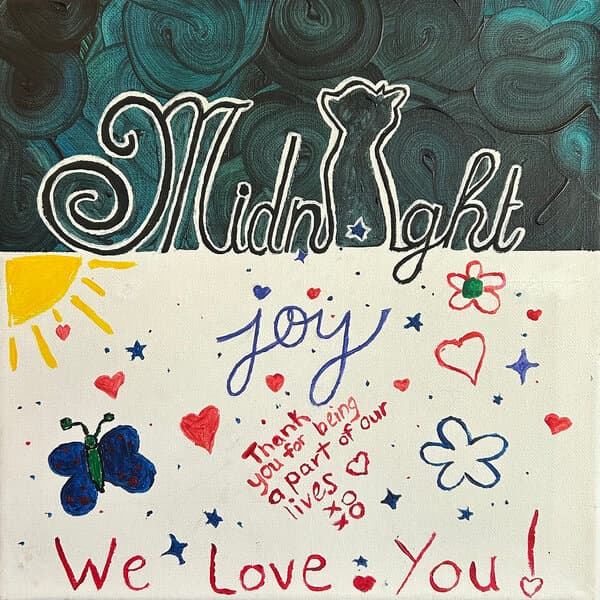 Midnight
joy
Thank
you for being
a part of our
lives
xo
xo
We Love You!